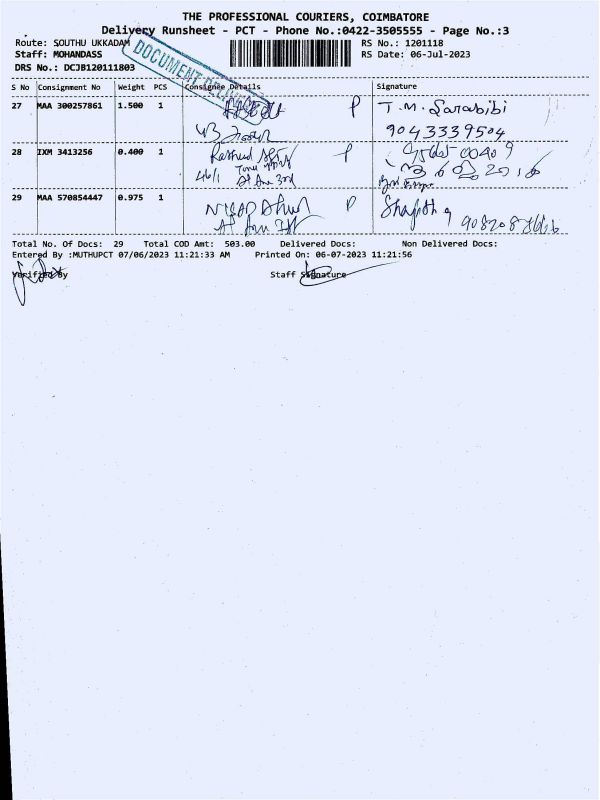 THE PROFESSIONAL COURIERS, COIMBATORE
Delivery Runsheet - PCT - Phone No.:0422-3505555 - Page No.:3
Route: SOUTHU UKKADAM
RS No.: 1201118
Staff: MOHANDASS
RS Date: 06-Jul-2023
DRS No.: DCJB120111803
DOCUMENT
S No Consignment No Weight PCS Consignee Details Signature
27 MAA 300257861 1.500 1 P T.M. Sarabibi
9043339504
28 IXM 3413256 0.400 1 P
46/1
29 MAA 570854447 0.975 1 P
Total No. Of Docs: 29 Total COD Amt: 503.00 Delivered Docs: Non Delivered Docs:
Entered By :MUTHUPCT 07/06/2023 11:21:33 AM Printed On: 06-07-2023 11:21:56
Verified By Staff Signature